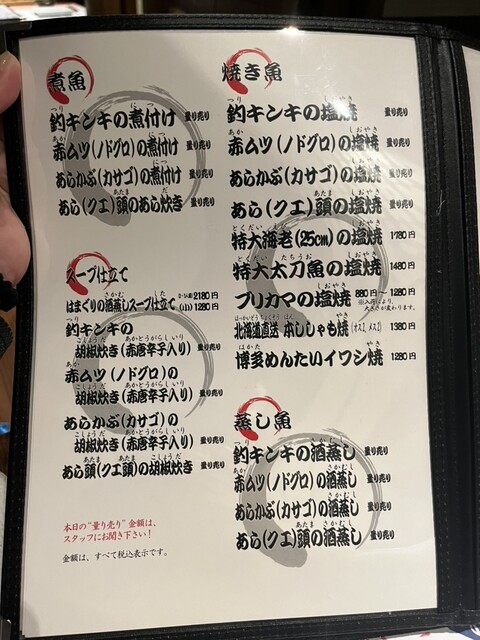 煮魚
釣キンキの煮付け 量り売り
赤ムツ(ノドグロ)の煮付け 量り売り
あらかぶ(カサゴ)の煮付け 量り売り
あら(クエ)頭のあら炊き 量り売り
スープ仕立て
はまぐりの酒蒸しスープ仕立て 2180円
(小) 1280円
釣キンキの
胡椒炊き(赤唐辛子入り) 量り売り
赤ムツ(ノドグロ)の
胡椒炊き(赤唐辛子入り) 量り売り
あらかぶ(カサゴ)の
胡椒炊き(赤唐辛子入り) 量り売り
あら頭(クエ頭)の胡椒炊き 量り売り
本日の"量り売り"金額は、
スタッフにお聞き下さい!
金額は、すべて税込表示です。
焼き魚
釣キンキの塩焼 量り売り
赤ムツ(ノドグロ)の塩焼 量り売り
あらかぶ(カサゴ)の塩焼 量り売り
あら(クエ)頭の塩焼 量り売り
特大海老(25cm)の塩焼 1780円
特大太刀魚の塩焼 1480円
ブリカマの塩焼 880円〜1280円
※入荷により、
大きさが変わります。
北海道直送 本ししゃも焼(オス2、メス2) 1380円
博多めんたいイワシ焼 1280円
蒸し魚
釣キンキの酒蒸し 量り売り
赤ムツ(ノドグロ)の酒蒸し 量り売り
あらかぶ(カサゴ)の酒蒸し 量り売り
あら(クエ)頭の酒蒸し 量り売り